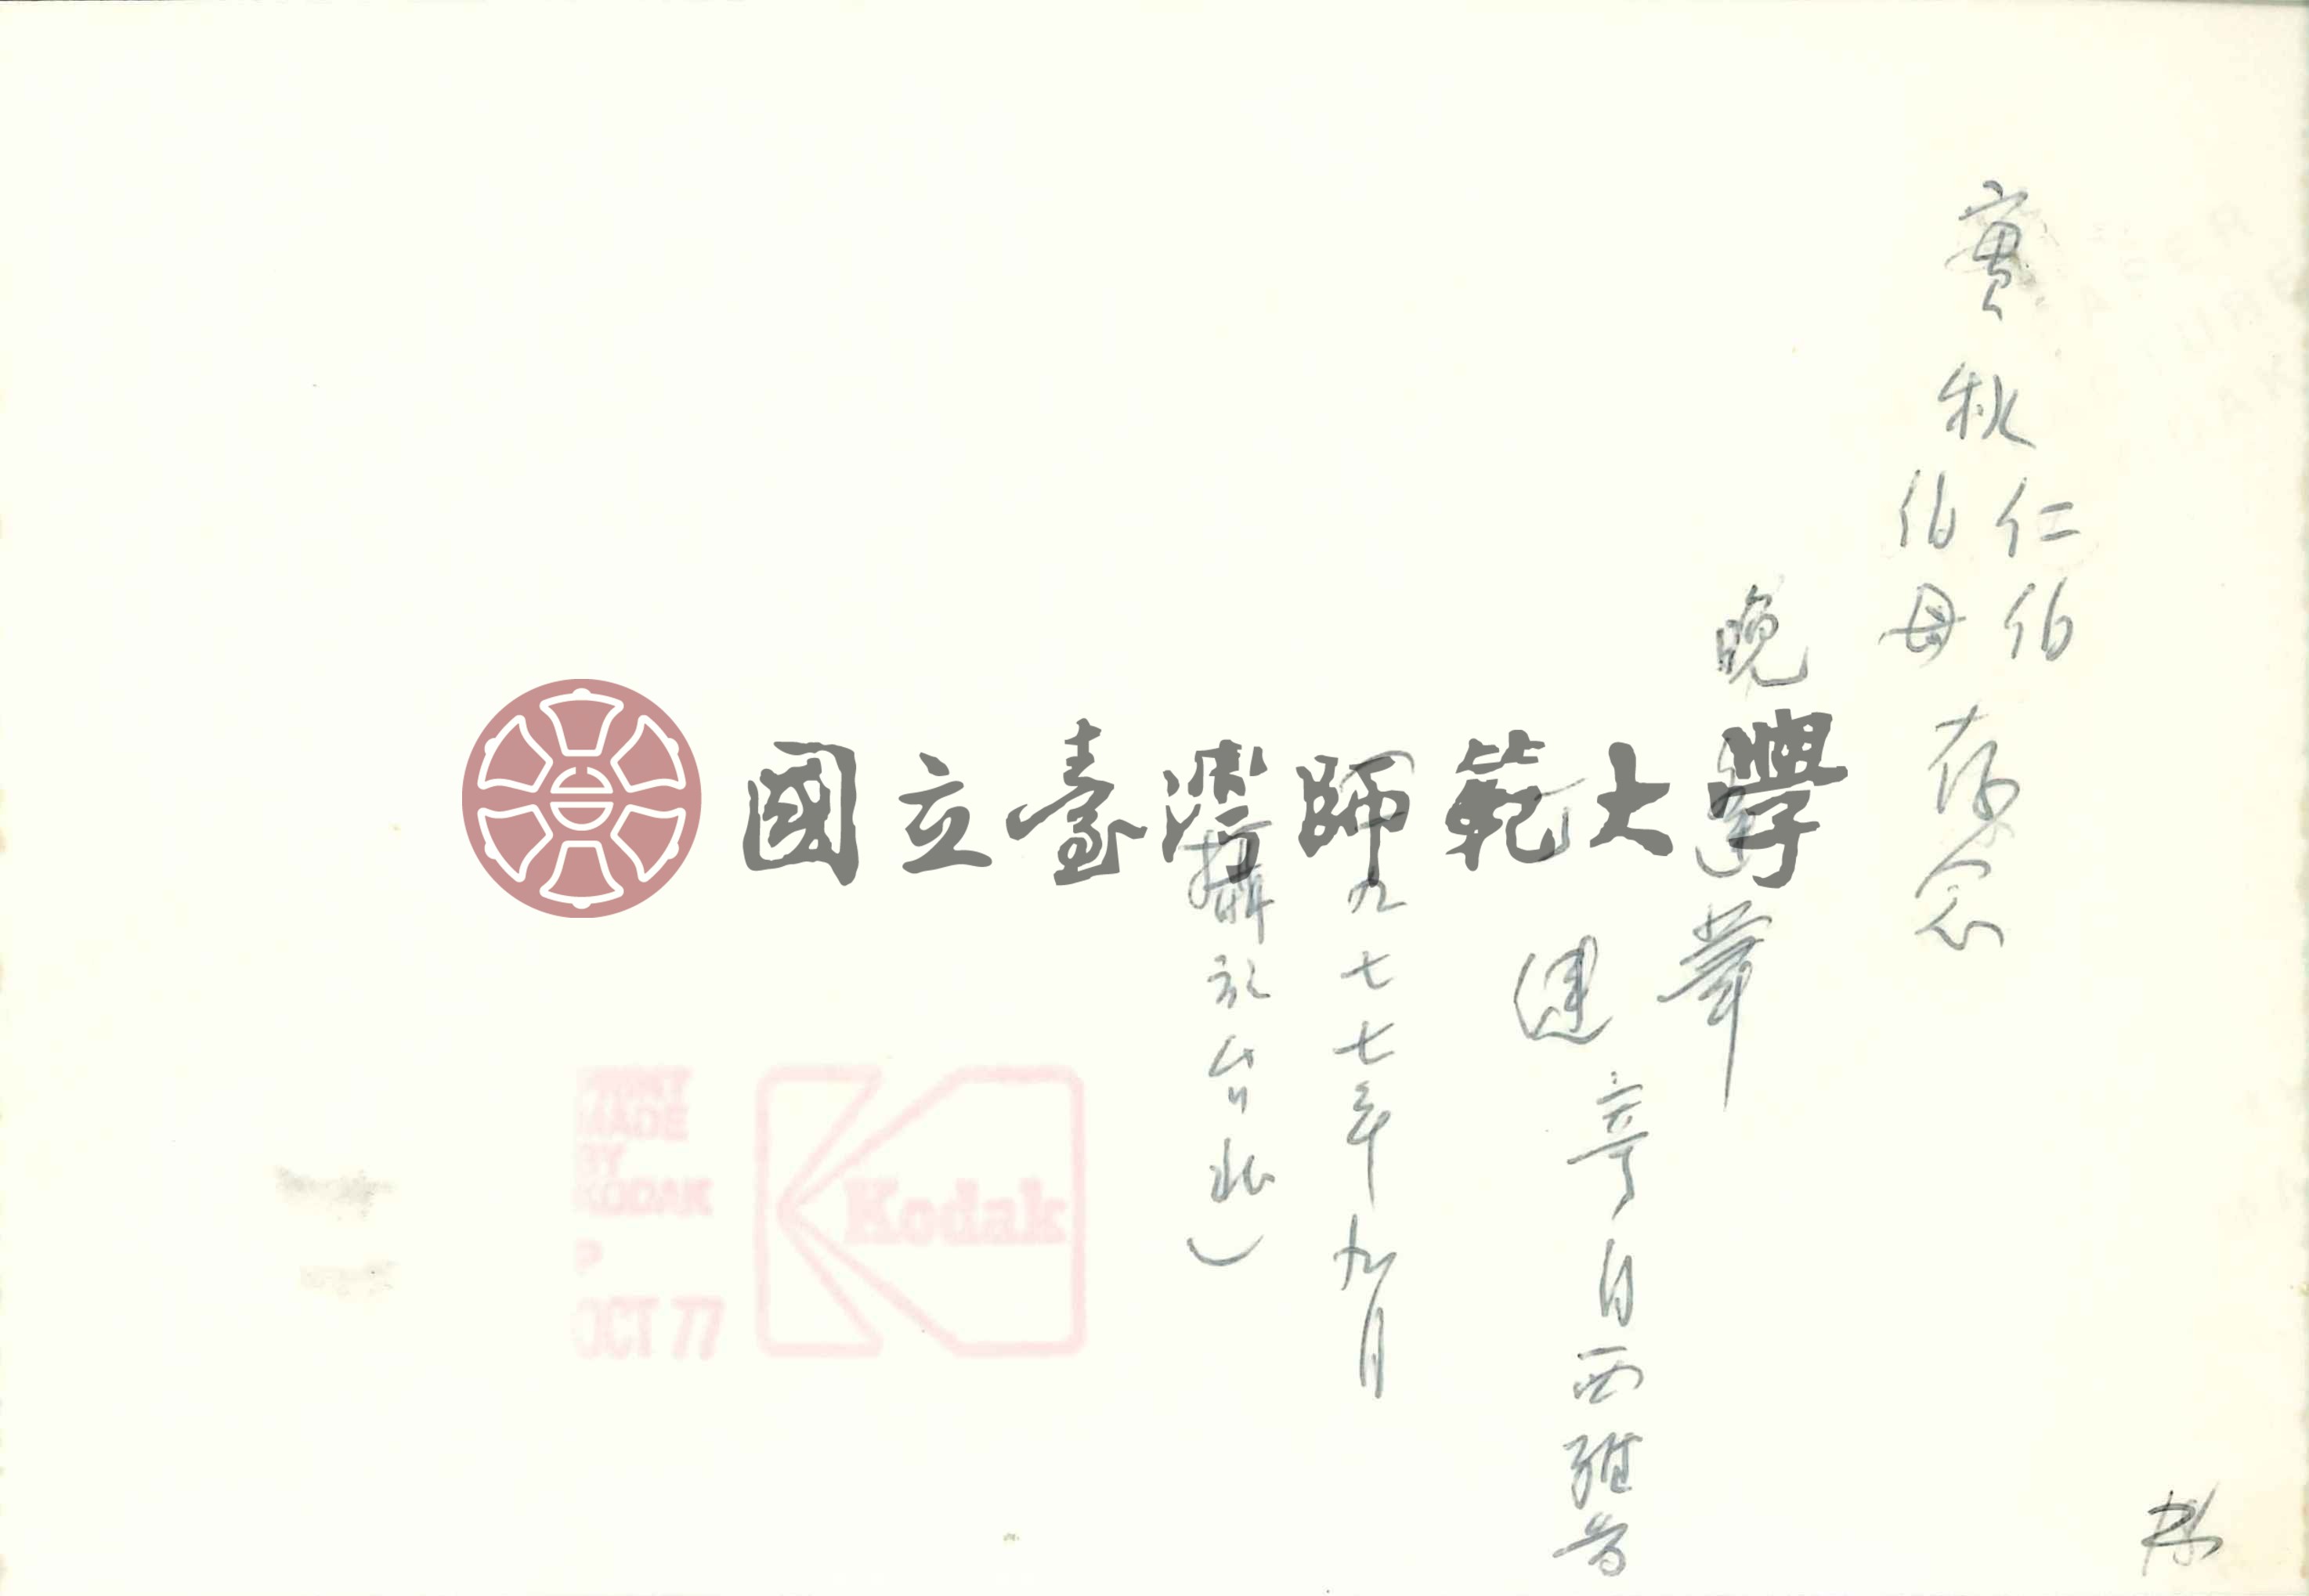 實秋
仁伯
伯母
存念
晚
華
健
寄自西雅圖
(一九七七年九月
攝於台北)
國立臺灣師範大學
PRINT
MADE
BY
KODAK
P
OCT 77
Kodak